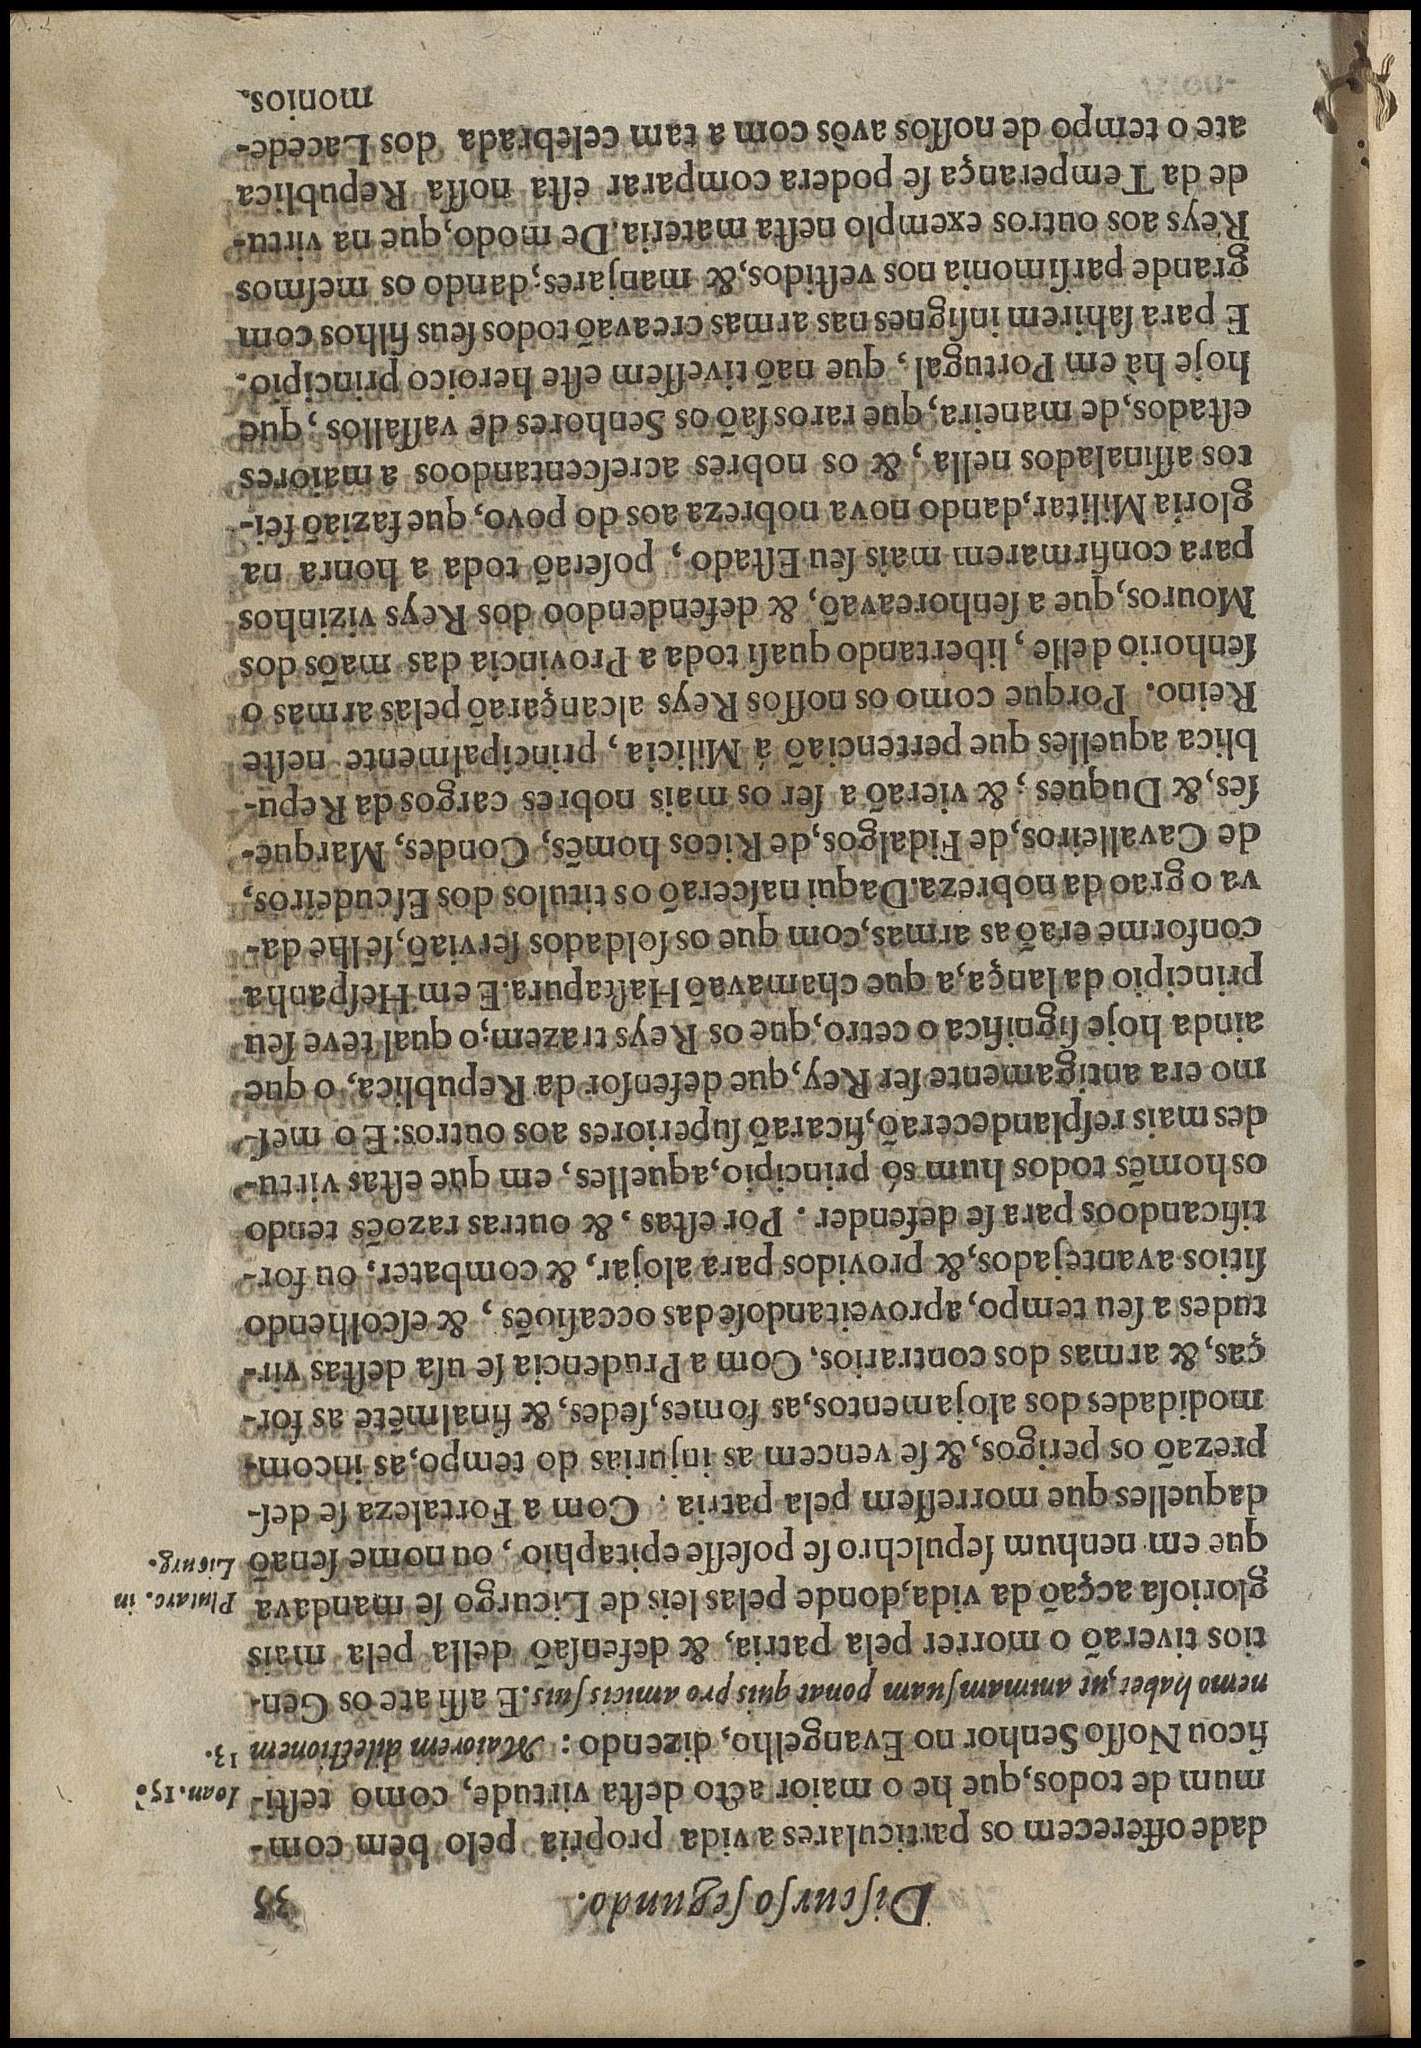 Diſcurſo ſegundo. 35
dade offerecem os particulares a vida propria pelo bem com-
mum de todos, que he o maior acto deſta virtude, como teſti-
Ioan. 15.
ficou Noſſo Senhor no Evangelho, dizendo: Maiorem dilectionem
13.
nemo habet, ut animam ſuam ponat quis pro amicis ſuis. E aſſi ate os Gen-
tios tiveraõ o morrer pela patria, & defenſaõ della pela mais
glorioſa acçaõ da vida, donde pelas leis de Licurgo ſe mandava
Plutarc. in
que em nenhum ſepulchro ſe poſeſſe epitaphio, ou nome ſenaõ
Licurg.
daquelles que morreſſem pela patria. Com a Fortaleza ſe deſ-
prezaõ os perigos, & ſe vencem as injurias do tempo, as incom-
modidades dos alojamentos, as fomes, ſedes, & finalmẽte as for-
ças, & armas dos contrarios. Com a Prudencia ſe uſa deſtas vir-
tudes a ſeu tempo, aproveitandoſe das occaſioẽs, & eſcolhendo
ſitios avantejados, & providos para alojar, & combater, ou for-
tificandoos para ſe defender. Por eſtas, & outras razoẽs tendo
os homẽs todos hum só principio, aquelles, em que eſtas virtu-
des mais reſplandeceraõ, ficaraõ ſuperiores aos outros: E o meſ-
mo era antigamente ſer Rey, que defenſor da Republica, o que
ainda hoje ſignifica o cetro, que os Reys trazem; o qual teve ſeu
principio da lança, a que chamavaõ Haſtapura. E em Heſpanha
conforme eraõ as armas, com que os ſoldados ſerviaõ, ſe lhe da-
va o grao da nobreza. Daqui naſceraõ os titulos dos Eſcudeiros,
de Cavalleiros, de Fidalgos, de Ricos homẽs, Condes, Marque-
ſes, & Duques; & vieraõ a ſer os mais nobres cargos da Repu-
blica aquelles que pertenciaõ á Milicia, principalmente neſte
Reino. Porque como os noſſos Reys alcançaraõ pelas armas o
ſenhorio delle, libertando quaſi toda a Provincia das maõs dos
Mouros, que a ſenhoreavaõ, & defendendoo dos Reys vizinhos
para confirmarem mais ſeu Eſtado, poſeraõ toda a honra na
gloria Militar, dando nova nobreza aos do povo, que faziaõ fei-
tos aſſinalados nella, & os nobres acreſcentandoos a maiores
eſtados, de maneira, que raros ſaõ os Senhores de vaſſallos, que
hoje hà em Portugal, que naõ tiveſſem eſte heroico principio.
E para ſahirem inſignes nas armas creavaõ todos ſeus filhos com
grande parſimonia nos veſtidos, & manjares; dando os meſmos
Reys aos outros exemplo neſta materia. De modo, que na virtu-
de da Temperança ſe podera comparar eſta noſſa Republica
ate o tempo de noſſos avòs com a tam celebrada dos Lacede-
monios.